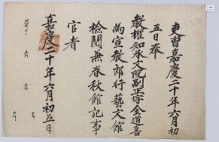 吏曹嘉慶二十年六月初
五日奉
教禮知承文院副正字金道喜
爲宣敎郎行藝文館
檢閱兼春秋館記事
官者
嘉慶二十年六月初五日